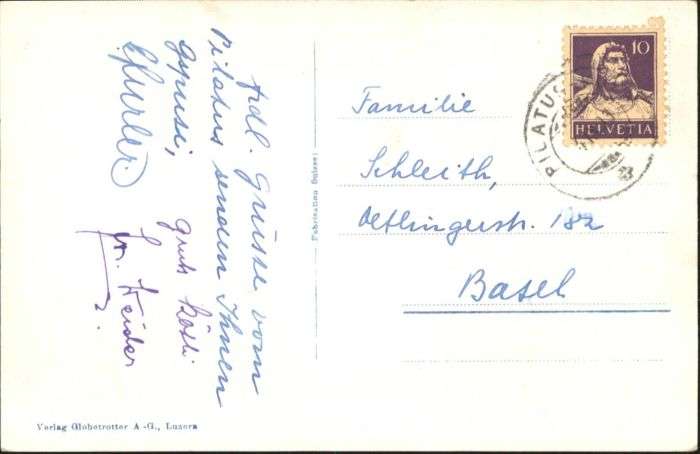 frdl. Grüsse vom
Pilatus senden Ihnen
Gruss Rösli
Fabrication Suisse
Familie
Schleith,
Oetlingerstr. 182
Basel
10
HELVETIA
PILATUS
Verlag Globetrotter A.-G., Luzern